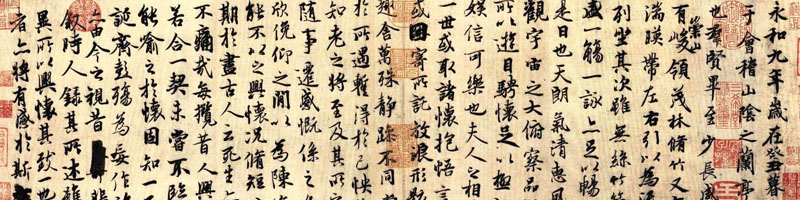 永和九年歲在癸丑暮
于會稽山陰之蘭亭
也羣賢畢至少長咸
有崇山峻領茂林脩竹又
湍暎帶左右引以為流
列坐其次雖無絲竹管
盛一觴一詠亦足以暢
是日也天朗氣清惠風
觀宇宙之大俯察品
所以遊目騁懷足以極
娛信可樂也夫人之相
一世或取諸懷抱悟言
或因寄所託放浪形骸
趣舍萬殊靜躁不同當
於所遇暫得於己怏
知老之將至及其所之
隨事遷感慨係之
欣俛仰之閒以為陳迹
能不以之興懷況脩短
期於盡古人云死生
不痛哉每攬昔人興
若合一契未嘗不臨
能喻之於懷固知一死
誕齊彭殤為妄作後
由今之視昔悲
敘時人錄其所述雖
異所以興懷其致一也
者亦將有感於斯